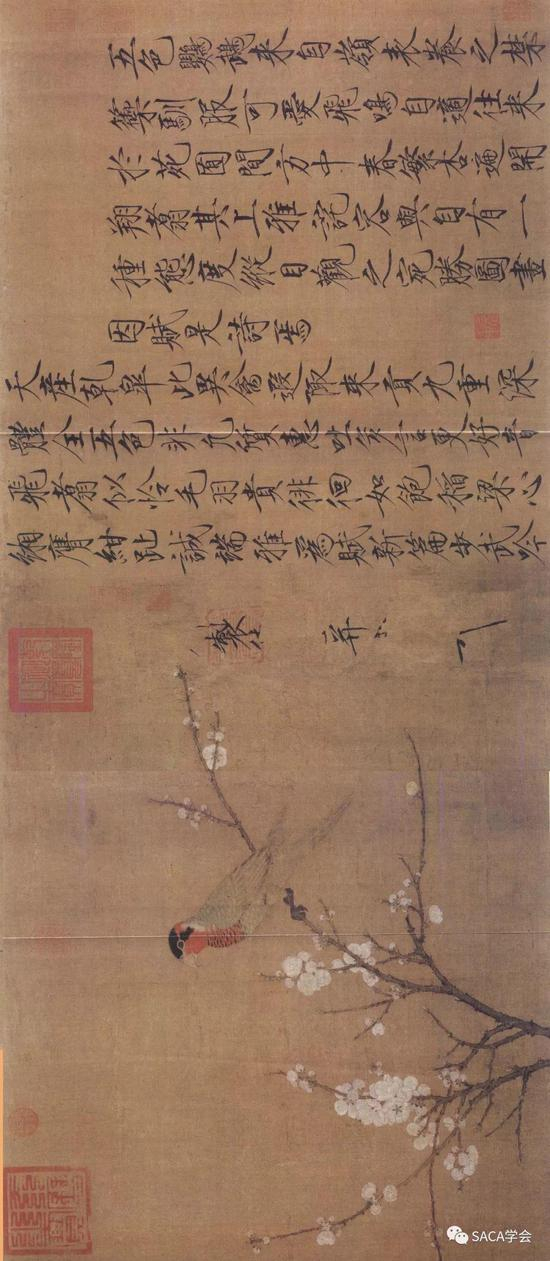 五色鸚鵡來自嶺表養之禁
籞馴服可愛飛鳴自適往來
於苑囿間方中春繁杏遍開
翔翥其上雅詫容與自有一
種態度縱目觀之宛勝圖畫
因賦是詩焉
天產乾皋此異禽遐陬來貢九重深
體全五色非凡質惠吐多言更好音
飛翥似怜毛羽貴徘徊如飽稻粱心
緗膺紺趾誠端雅為賦新篇步武吟
製 并
SACA学会